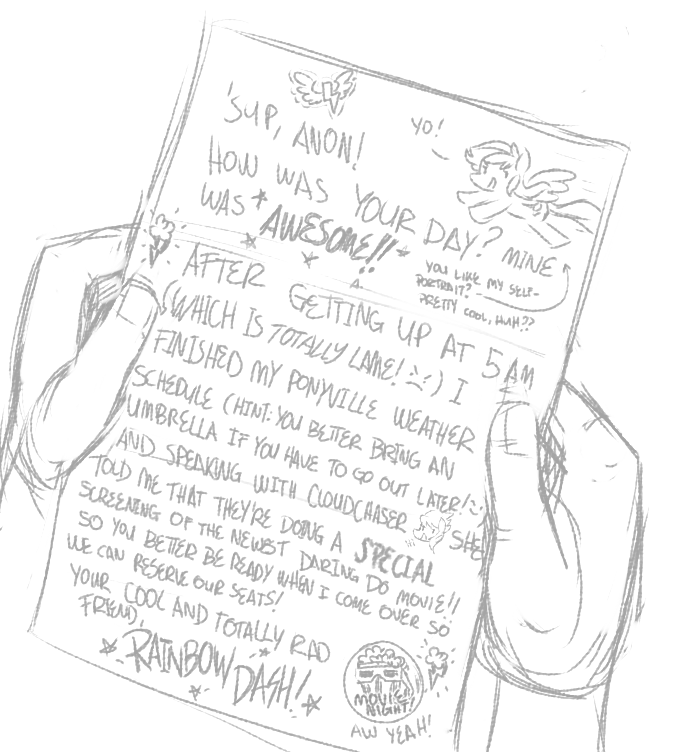 'SUP, ANON!
YO!
HOW WAS YOUR DAY? MINE
WAS *AWESOME!!*
YOU LIKE MY SELF-
PORTRAIT?
PRETTY COOL, HUH??
AFTER GETTING UP AT 5 AM
(WHICH IS TOTALLY LAME! >:() I
FINISHED MY PONYVILLE WEATHER
SCHEDULE (HINT: YOU BETTER BRING AN
UMBRELLA IF YOU HAVE TO GO OUT LATER! ;)
AND SPEAKING WITH CLOUDCHASER SHE
TOLD ME THAT THEY'RE DOING A SPECIAL
SCREENING OF THE NEWEST DARING DO MOVIE!!
SO YOU BETTER BE READY WHEN I COME OVER SO
WE CAN RESERVE OUR SEATS!
YOUR COOL AND TOTALLY RAD
FRIEND,
RAINBOW DASH!
MOVIE
NIGHT!
AW YEAH!